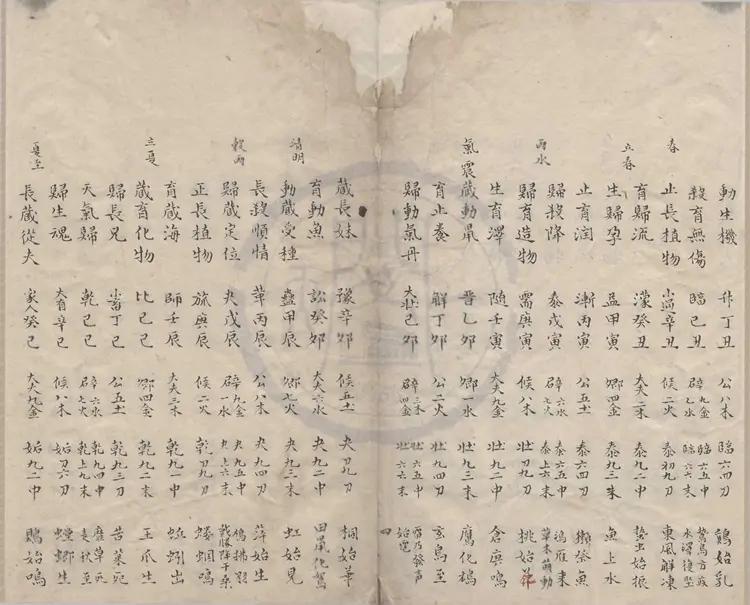 動生機 升丁丑 公八木 臨六四刀 鵲始乳
春
殺育無傷 臨己丑 辟九金 乙水 臨六五中 臨六六末 鷙鳥方厲 水澤復堅
止長植物 小過辛丑 候二火 泰初九刀 東風解凍
育歸流 濛癸丑 大夫二木 泰九二中 蟄虫始振
立春
生歸孕 益甲寅 卿四金 泰九三末 魚上水
止育潤 漸丙寅 公五土 泰六四刀 獺祭魚
歸殺降 泰戊寅 辟六水 七火 泰六五中 泰上六末 鴻雁來 草木萌動
雨水
歸育造物 需庚寅 候八木 壯刀九刀 桃始華
生育澤 隨壬寅 大夫九金 壯九二中 倉庚鳴
氣震
蔵動鼎 晋乙卯 卿一水 壯九三末 鷹化鳩
育止養 解丁卯 公二火 壯九四刀 玄鳥至
歸動氣丹 大壯己卯 辟三木 四金 壯六五中 壯六六末 雷乃發声 始電
四
蔵長妹 豫辛卯 候五土 夬刀九刀 桐始華
育動魚 訟癸卯 大夫六水 夬九二中 田鼠化鴽
動蔵受種 蠱甲辰 卿七火 夬九三末 虹始見
清明
長殺順情 革丙辰 公八木 夬九四刀 萍始生
歸蔵定位 夬戊辰 辟九金 一水 夬九五中 夬上六末 鳩拂羽 戴勝降于桑
穀雨
正長植物 旅庚辰 候二火 乾刀九刀 螻蟈鳴
育蔵海 師壬辰 大夫三木 乾九二中 蚯蚓出
蔵育化物 比乙巳 卿四金 乾九二末 王瓜生
立夏
歸長兄 小畜丁巳 公五土 乾九三刀 苦菜死
天氣歸 乾己巳 辟六水 七火 乾九四中 乾上九末 靡草死 麦秋至
歸生魂 大有辛巳 候八木 姤刀六刀 螳螂生
長蔵從夫 家人癸巳 大夫九金 姤九二中 鵙始鳴
夏至